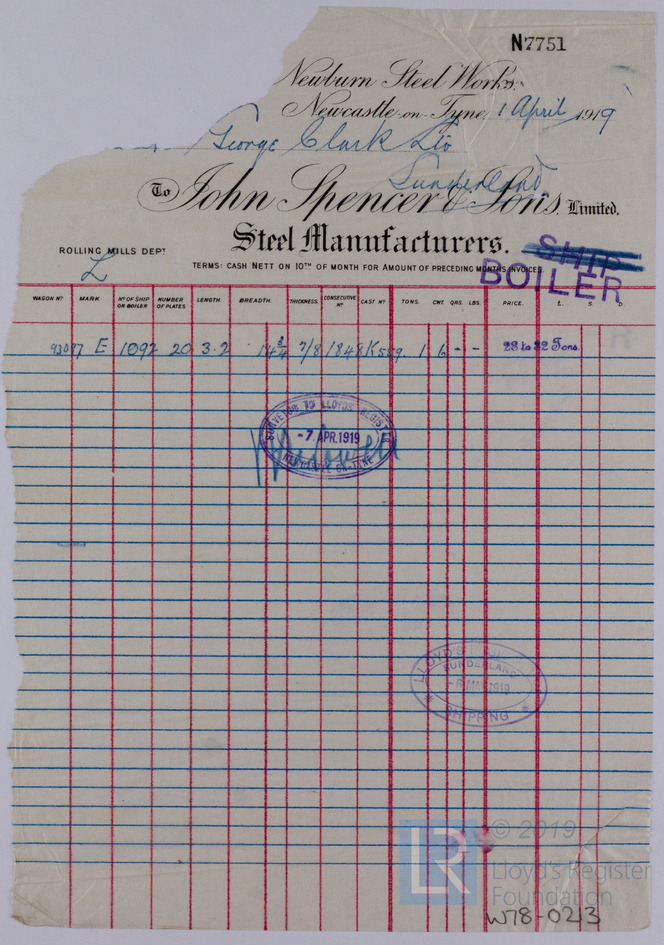 N7751
Newburn Steel Works,
Newcastle on Tyne, 1 April 1919
George Clark Ltd
Sunderland
To John Spencer & Sons, Limited,
Steel Manufacturers.
ROLLING MILLS DEPT
L
TERMS: CASH NETT ON 10TH OF MONTH FOR AMOUNT OF PRECEDING MONTHS INVOICES.
SHIP
BOILER
WAGON No MARK No OF SHIP OR BOILER NUMBER OF PLATES LENGTH. BREADTH. THICKNESS. CONSECUTIVE No CAST No TONS. CWT. QRS. LBS. PRICE. £. S. D.
E 1092 20 3.2 14 3/4 7/8 1848 K559. 1 6 - - 28 to 32 Tons.
SURVEYOR TO LLOYDS REGISTER
-7 APR.1919
NEWCASTLE-ON-TYNE
LLOYD'S
SUNDERLAND
-6 MAY 1919
SHIPPING
LR
© 2019
Lloyd's Register
Foundation
W78-0213